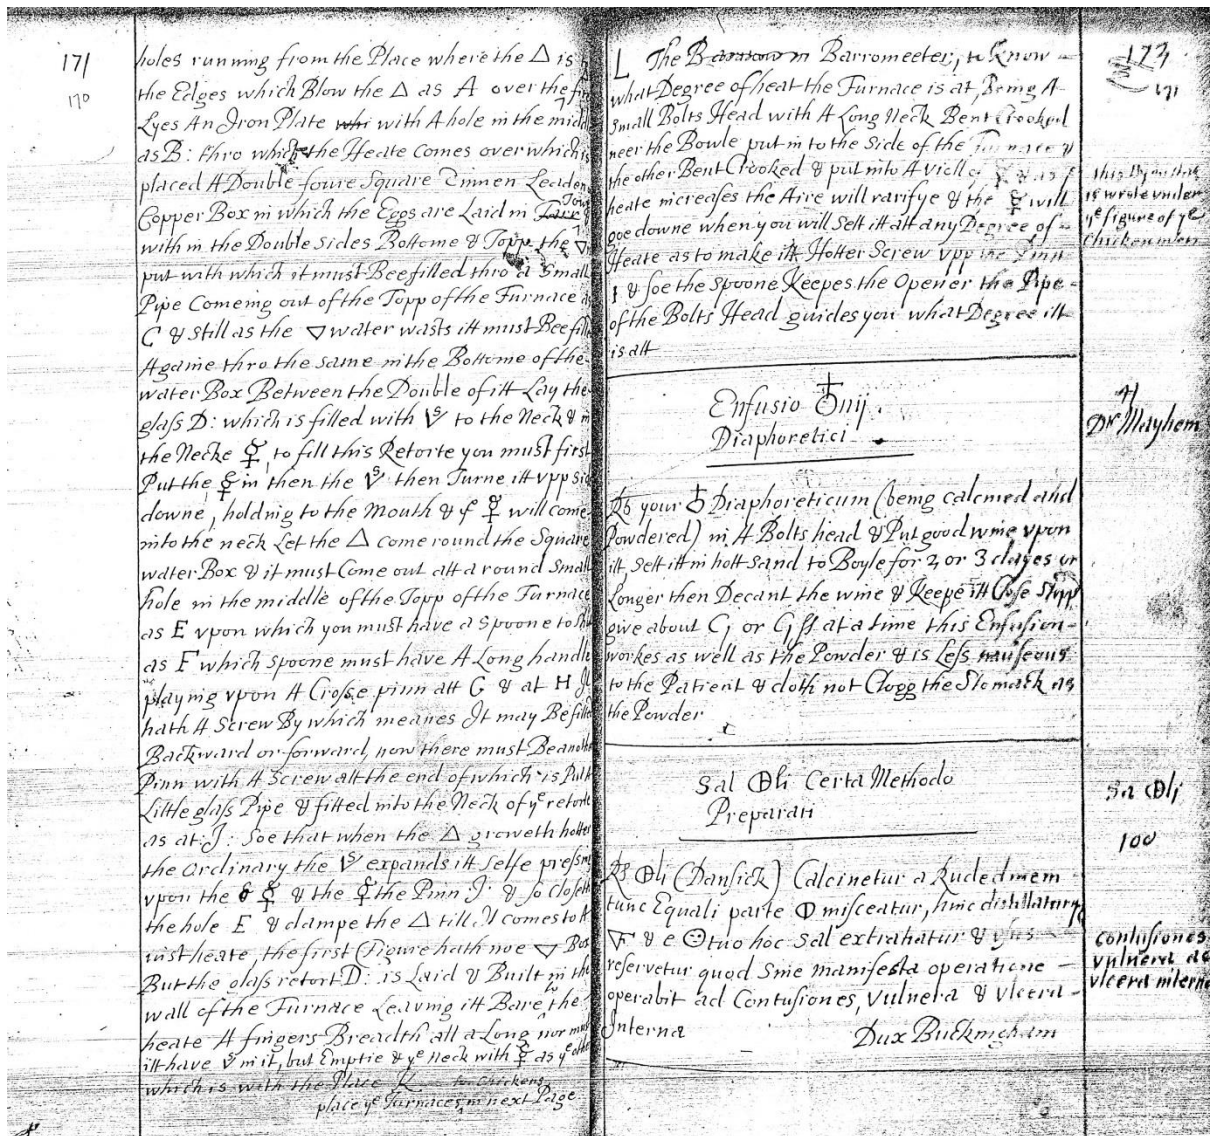 171
170
holes running from the Place where the △ is
the Edges which Blow the △ as A over the
Lyes An Iron Plate whi with A hole in the midd
as B: thro which the Heate comes over which is
placed A Double foure Square Tinnen Leaden
Copper Box in which the Eggs are Laid in
with in the Double sides Bottome & Topp the ▽
put with which it must Bee filled thro a Small
Pipe Comeing out of the Topp of the Furnace as
C & Still as the ▽ water wasts itt must Bee fille
Againe thro the same in the Bottome of the
water Box Between the Double of itt Lay the
glass D: which is filled with to the Neck & in
the Necke ☿, to fill this Retorte you must first
Put the ☿ in then the then Turne itt vpp sid
downe, holding to the Mouth & ye ☿ will come
into the neck Let the △ come round the Square
water Box & it must Come out att a round Small
hole in the middle of the Topp of the Furnace
as E vpon which you must have a Spoone to
as F which spoone must have A Long handle
playing vpon A Crosse pinn att G & at H It
hath A Screw By which meanes It may Be
Backward or forward, now there must Be anoth
Pinn with A Screw att the end of which is Putt
Little glass Pipe & fitted into the Neck of ye retorte
as at J: Soe that when the △ groweth hotter
the ordinary the expands itt selfe pressing
vpon the ☿ & the ☿ the Pinn J: & so Closeth
the hole E & dampe the △ till It comes to A
just heate, the first Figure hath noe ▽ Box
But the glass retort D: is Laid & Built in the
wall of the Furnace Leaving itt Bare to the
heate A fingers Breadth all a Long nor must
itt have in it, but Emptie & ye neck with ☿ as ye other
which is with the Place K for Chickens
place ye Furnaces in next Page
173
171
L The Barromeeter, to know
what Degree of heat the Furnace is at, Being A
Small Bolts Head with A Long Neck Bent Crooked
neer the Bowle put in to the Side of the Furnace &
the other Bent Crooked & put into A viell of ☿ & as ye
heate increases the Aire will rarifye & the ☿ will
goe downe when you will Sett itt att any Degree of
Heate as to make itt Hotter Screw vpp the Pinn
I & soe the Spoone Keepes the Opener the Pipe
of the Bolts Head guides you what Degree itt
is att
is wrote vnder
ye figure of ye
Chicken
Enfusio ♁nij
Diaphoretici
Dr Mayhem
℞ your ♁ Diaphoreticum (being calcined and
Powdered) in A Bolts head & Put good wine vpon
itt, Sett itt in hott Sand to Boyle for 2 or 3 dayes or
Longer then Decant the wine & Keepe itt Close Stopp
give about at a time this Enfusion
workes as well as the Powder & is Less nauseous
to the Patient & doth not Clogg the Stomack as
the Powder
Sal ⦶li Certa Methodo
Preparati
Sa ⦶li
100
℞ ⦶li (Dansick) Calcinetur a Rudedinem
tunc Equali parte ⦶ misceatur, hinc distillatur
& e tuo hoc Sal extrahatur &
reservetur quod Sine manifesta operatione
operabit ad Contusiones, Vulnera & Vlcera
Interna
Dux Buckingham
contusiones
vulnera ac
vlcera interna